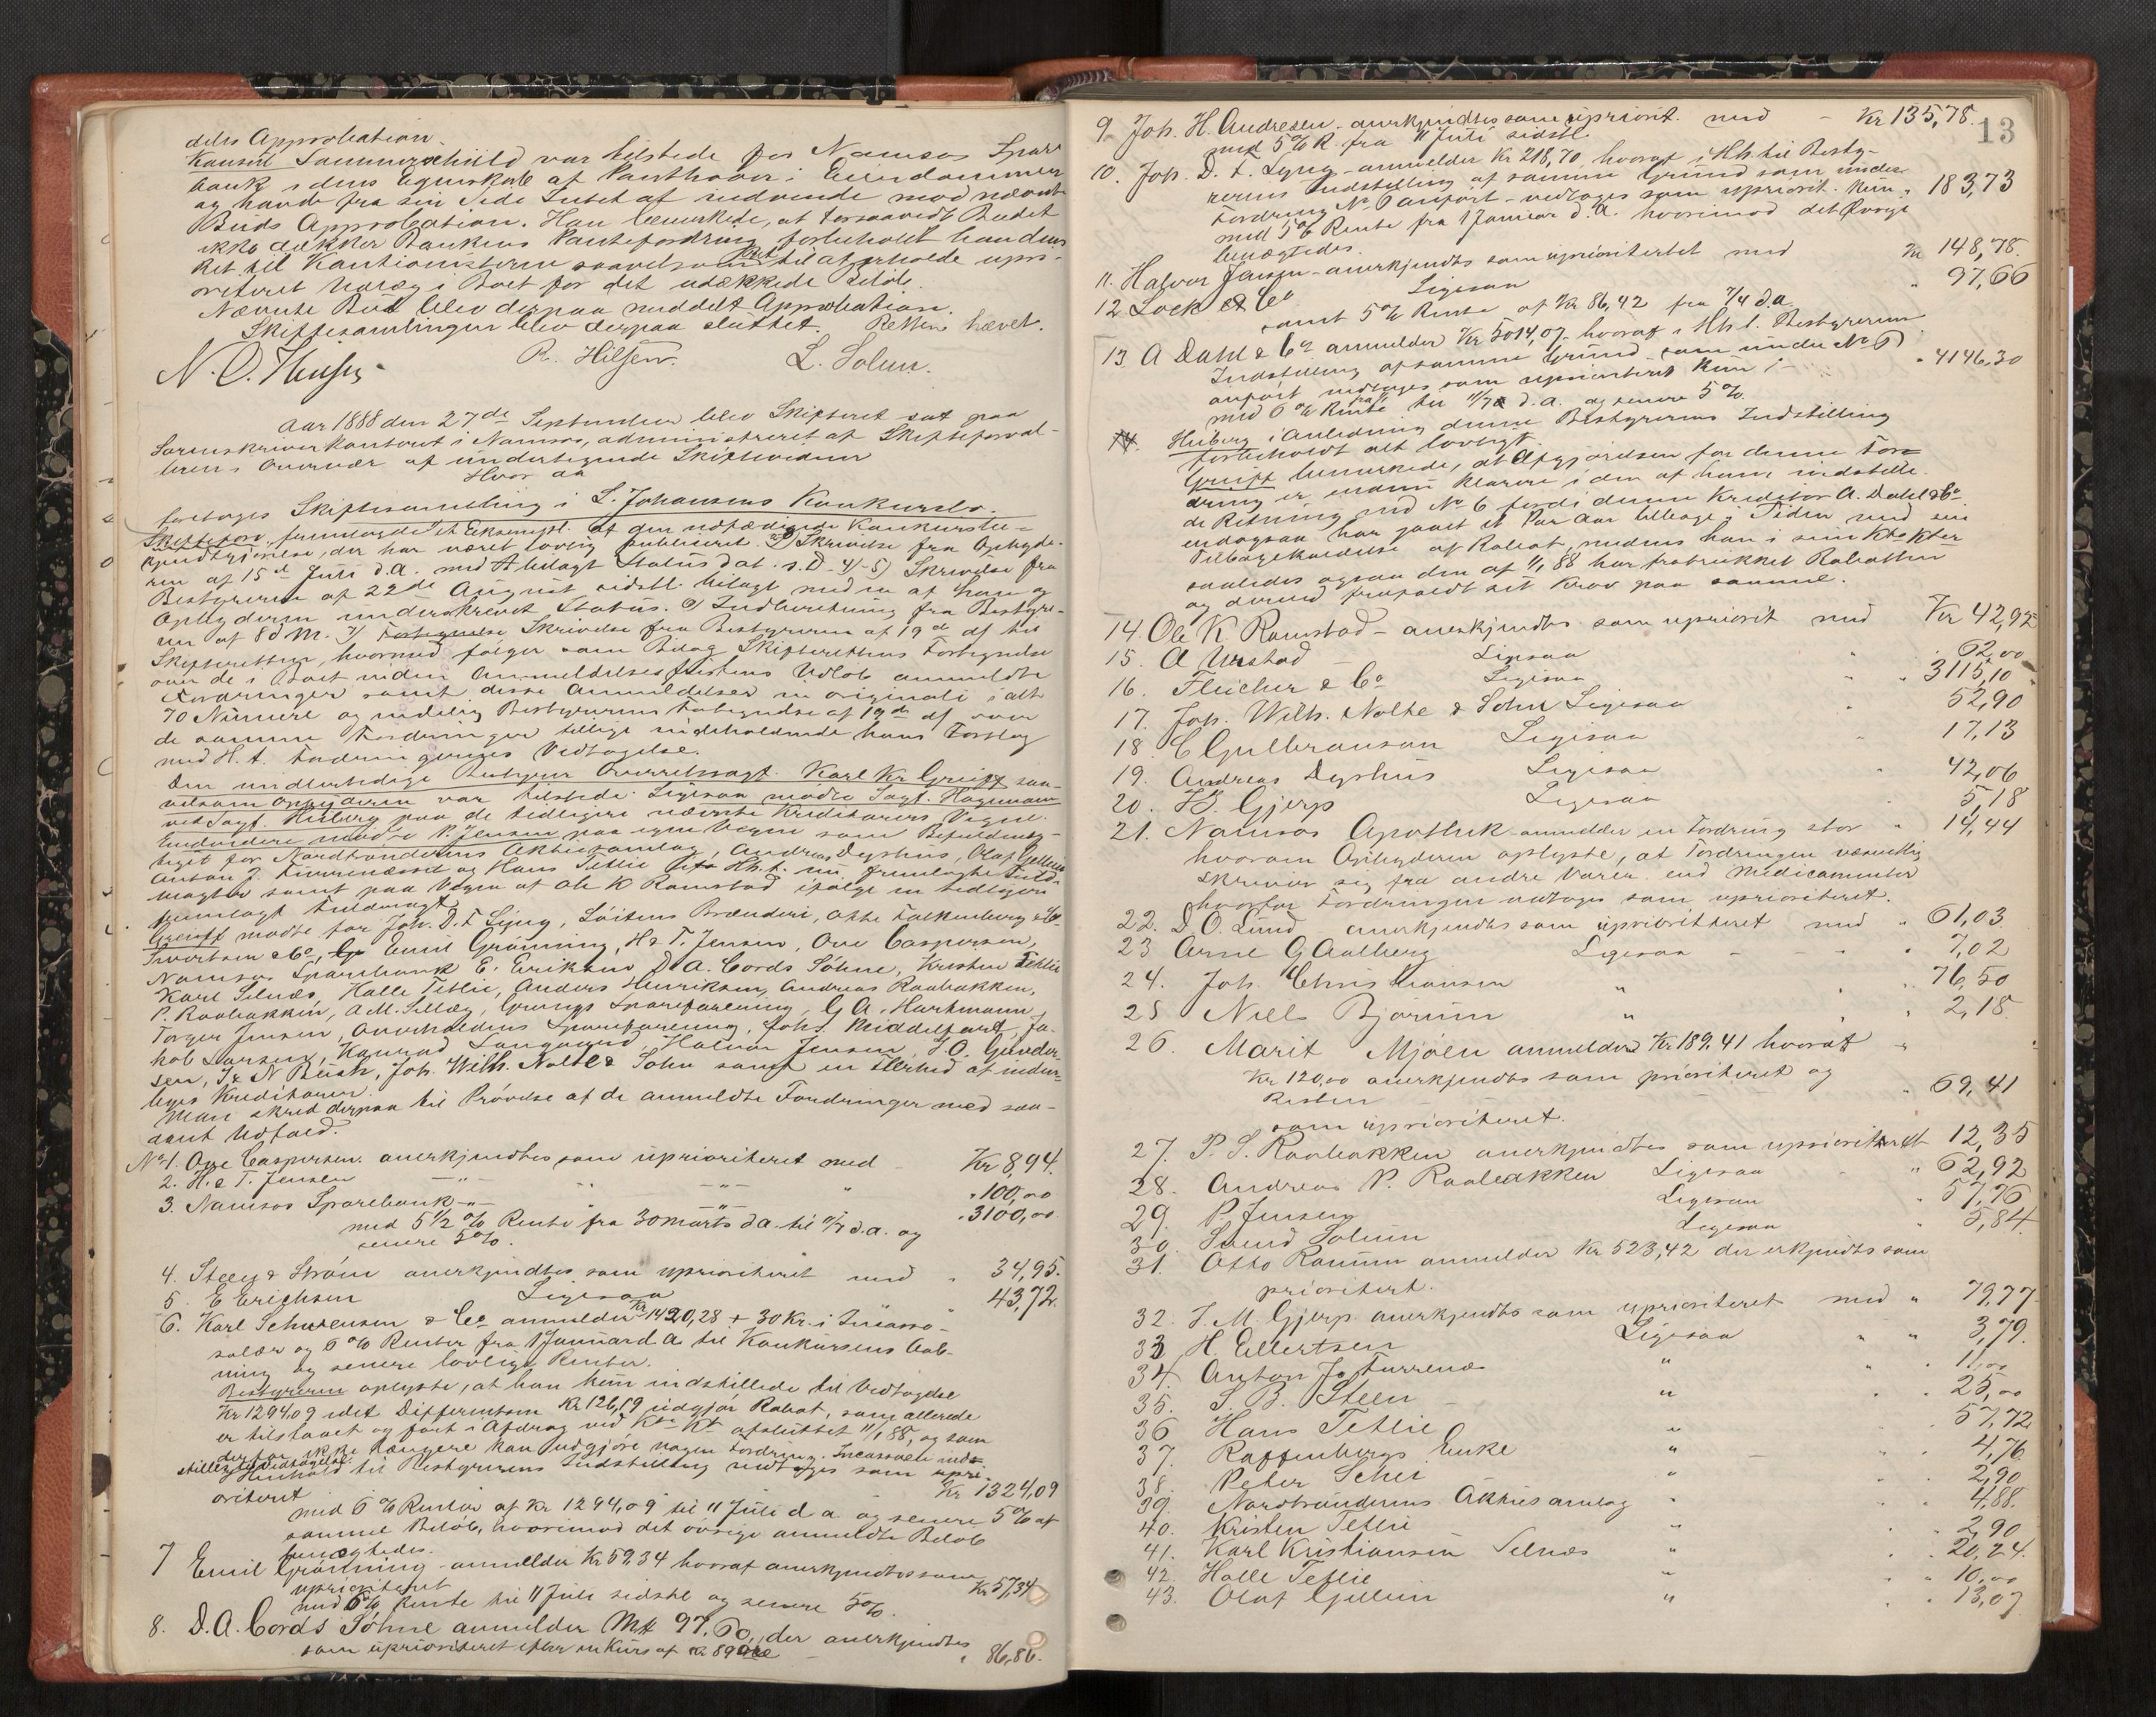 dets Approbation.
Konsul Sommerschield var tilstede for Namsos Spare
bank i dens Egenskab af Panthaver i Eiendommen
og havde fra sin Side Intet at indvende mod nævnte
Buds Approbation. Han bemærkede, at forsaavidt Budet
ikke dækker Bankens Pantefordring forbeholdt han dens
Ret til Kautionisterne saavelsom Ret til at erholde upri-
oriteret Udlæg i Boet for det udækkede Beløb.
Nævnte Bud blev derpaa meddelt Approbation.
Skiftesamlingen blev derpaa sluttet. Retten hævet.
R. Hilsen. L. Solum.
Aar 1888 den 27de September blev Skifteret sat paa
Sorenskriverkontoret i Namsos, administreret af Skifteforval-
teren i Overvær af undertegnede Skiftevidner
Hvor da
foretoges Skiftesamling i L. Johansens Konkursbo.
Skifteforv. fremlagde et Eksempl. af den udfærdigede Konkursbe-
kjendtgjørelse, der har været lovlig publiceret. Skrivelse fra Opbyde-
ren af 15de Juli d.A. med bilagt Status dat. s.D. 4)-5) Skrivelse fra
Bestyreren af 22de August sidstl. bilagt med en af ham og
Opbyderen underskrevet Status. 6) Indberetning fra Bestyre-
ren af 8 d.M. 7) Skrivelse fra Bestyreren af 19de ds til
Skifteretten, hvormed følger som Bilag Skifterettens Fortegnelse
over de i Boet inden Anmeldelsesfristens Udløb anmeldte
Fordringer samt disse Anmeldelser in originali i alt
70 Numere og endelig Bestyrerens Fortegnelse af 19de ds over
de samme Fordringer tillige indeholdende hans Forslag
med H. t. Fordringernes Vedtagelse.
Den midlertidige Bestyrer Overretssagf. Karl Kr. Greift saa-
velsom Opbyderen var tilstede. Ligesaa mødte Sagf. Hagemann
ved Sagf. Heiberg paa de tidligere nævnte Kreditorers Vegne.
Endvidere mødte P. Jensen paa egne Vegne som Befuldmæg-
tiget for Nordtrønderens Aktiesamlag, Andreas Dyshus, Olaf Gjellum
Anton J. Furrenæsset og Hans Tetlie ifø Hh.t. nu fremlagte Fuld-
magter samt paa Vegne af Ole K Ramstad ifølge en tidligere
fremlagt Fuldmagt
Greift mødte for Joh. D. F Lyng, Løitens Brænderi, Otto Falkenberg & Co
Sivertsen & Co, Emil Grønning, H & T. Jensen, Ove Caspersen,
Namsos Sparebank E. Eriksen, D. A. Cords Söhne, Kristen Tetlie
Karl Selnæs, Halle Tetlie, Anders Henriksen, Andreas Raabakken,
P. Raabakken, A M. Sellæg, Grongs Spareforening, G A. Hartmann,
Torger Jensen, Overhaldens Spareforening, Johs. Middelfart, Ja-
kob Larsen, Konrad Langaard, Halvor Jensen, J. O. Gunder-
sen, I & N Busch, Joh. Wilh. Nolte & Sohn samt en Flerhed af inden-
byes Kreditorer.
Man skred derpaa til Prøvelse af de anmeldte Fordringer med saa-
dant Udfald.
No 1. Ove Caspersen anerkjendtes som uprioriteret med Kr 8,94.
2. H. & T. Jensen —"— —"— " " 100,00
3. Namsos Sparebank —"— —"— " 3100,00
med 5 1/2 % Rente fra 30 Marts d.a. til 11/7 d.a. og
senere 5 %.
4. Steen & Strøm anerkjendtes som uprioriteret med " 34,95.
5. E Erichsen Ligesaa " 43,72.
6. Karl Schwensen & Co anmelder Kr 1420,28 + 30 Kr. i Incasso-
salær og 6 % Renter fra 1 Januar d A til Konkursens Aab-
ning og senere lovlige Renter.
Bestyreren oplyste, at han kun indstillede til Vedtagelse
Kr 1294.09 idet Differentsen Kr 126,19 udgjør Rabat, som allerede
er tilstaaet og ført i Afdrag ved Kto Kt afsluttet 1/1 88, og som
derfor ikke længere kan udgjøre nogen Fordring. Incassoen ind-
stilles til Vedtagelse.
I Henhold til Bestyrerens Indstilling vedtoges som upri-
oriteret Kr 1324,09
med 6 % Renter af Kr 1294,09 til 11 Juli d a og senere 5 % af
samme Beløb, hvorimod det øvrige anmeldte Beløb
benegtedes.
7 Emil Grønning anmelder Kr 59.34 hvoraf anerkjendtes som
uprioriteret Kr. 57,34
med 6 % Rente til 11 Juli sidstl og senere 5 %.
8. D. A. Cords Söhne anmelder Mk 97.60, der anerkjendtes
som uprioriteret efter en Kurs af Kr 89 " 86,86.
13
9. Joh. H. Andresen - anerkjendtes som upriorit. med — Kr 135,78.
med 5 % R. fra 11 Juli sidstl.
10. Joh. D. F. Lyng - anmelder Kr 218,70 hvoraf i Hh. til Besty-
rerens Indstilling af samme Grund som under
Fordring No 6 anført - vedtoges som upriorit. kun " 183,73
med 5 % Rente fra 1 Januar d.A. hvorimod det Øvrige
benægtedes.
11. Halvor Jensen - anerkjendtes som uprioriteret med Kr 148,78.
12 Lock & Co Ligesaa " 97,66
samt 5 % Rente af Kr 86,42 fra 7/4 d.a.
13. A Dahl & Co anmelder Kr 5014,07 hvoraf i Hh. t. Bestyrerens
Indstilling af samme Grund som under No 6
anført vedtoges som uprioriteret kun " 4146,30
med 6 % Rente til 11/7 d.a. og senere 5 %.
Heiberg i Anledning denne Bestyrerens Indstilling
forbeholdt alt lovligt.
Greift bemærkede, at Afgjørelsen for denne For-
dring er endnu klarere i den af ham indstille-
de Retning end No 6 fordi denne Kreditor A. Dahl & Co
endogsaa har gaaet et Par Aar tilbage i Tiden med sin
Tilbagekaldelse af Rabat, medens han i sine Kto Kter
saaledes ogsaa den af 1/1 88 har fratrukket Rabatten
og derved frafaldt sit Krav paa samme.
14. Ole K Ramstad - anerkjendtes som upriorit med Kr 42,92
15. A Urstad — Ligesaa " " 62,00
16. Fleicher & Co Ligesaa " " 3115,10
17. Joh. Wilh. Nolte & Sohn Ligesaa " 52,90
18 C Gulbranson Ligesaa " 17,13
19. Andreas Dyshus Ligesaa " 42,06
20. H. Gjerp Ligesaa " 5,18
21. Namsos Apothek anmelder en Fordring stor " 14,44
hvorom Opbyderen oplyste, at Fordringen væsentlig
skriver sig fra andre Varer end Medicamenter
hvorfor Fordringen vedtoges som uprioriteret.
22. D. O. Lund anerkjendtes som uprioriteret med " 61,03
23 Arne G Aalberg Ligesaa - - " 7,02
24. Joh. Christiansen " " 76,50
25 Niels Bjørum " " 2,18
26. Marit Mjøen anmelder Kr 189,41 hvoraf
Kr 120,00 anerkjendtes som prioriteret og
Resten " 69,41
som uprioriteret.
27. P. S. Raabakken anerkjendtes som uprioriteret 12,35
28. Andreas P. Raabakken Ligesaa " 62,92
29. P. Jensen Ligesaa " 57,76
30. Svend Solum Ligesaa " 5,84
31. Otto Ranum anmelder Kr 523,42 der erkjendtes som
prioritert.
32. J. M. Gjerp anerkjendtes som uprioriteret med " 79,77
33 H. Ellertsen Ligesaa " " 3,79.
34. Anton J. Furrenæs " " 11,00
35. S. B. Steen " " 25,00
36 Hans Tetlie " 57,72
37. Raffenbergs Enke " 4,76
38. Peter Schei " 2,90
39. Nordtrønderens Aktiesamlag " 4,88.
40. Kristen Tetlie " 2,90
41. Karl Kristiansen Selnæs " 20,24.
42. Halle Tetlie " 10,00
43. Olaf Gjellum " 13,07